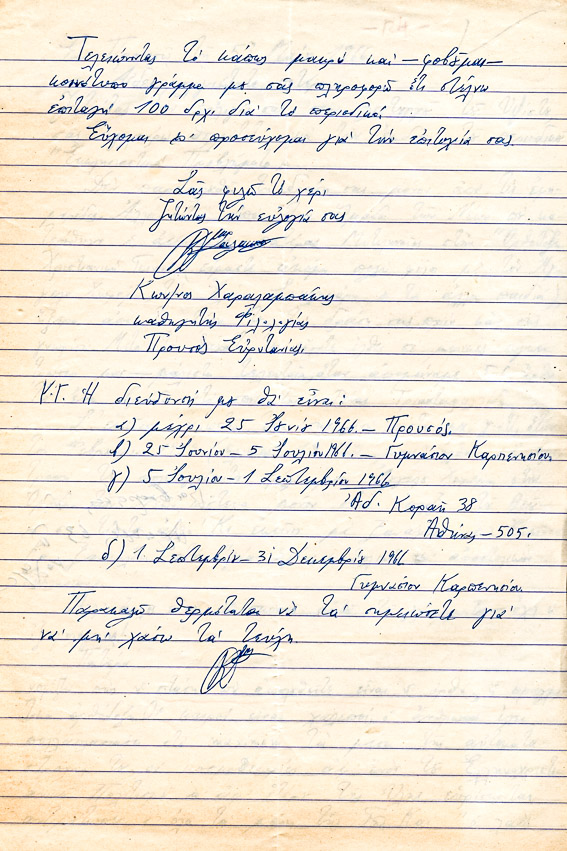 Τελειώνοντας τό κάπως μακρύ καί – φοβᾶμαι –
κακότυπο γράμμα μου σᾶς πληροφορῶ ὅτι στέλνω
ἐπιταγή 100 δρχ. διά τό περιοδικό.
Εὔχομαι κ' προσεύχομαι γιά τήν ἐπιτυχία σας.
Σᾶς φιλῶ τό χέρι
ζητώντας τήν εὐλογία σας
Κων/νος Χαραλαμπάκης
καθηγητής Φιλολογίας
Προυσός Εὐρυτανίας.
Υ.Γ. Ἡ διεύθυνσή μου θά εἶναι:
α) μέχρι 25 Ἰουνίου 1966. – Προυσός.
β) 25 Ἰουνίου – 5 Ἰουλίου 1966. – Γυμνάσιον Καρπενησίου
γ) 5 Ἰουλίου – 1 Σεπτεμβρίου 1966
Ἀδ. Κοραῆ 38
Ἀθήνας – 505.
δ) 1 Σεπτεμβρίου – 31 Δεκεμβρίου 1966
Γυμνάσιον Καρπενησίου
Παρακαλῶ θερμότατα νά τά σημειώσετε γιά
νά μή χάσω τά τεύχη.